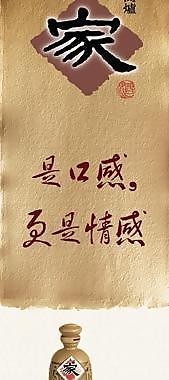 家
是口感，
更是情感
家